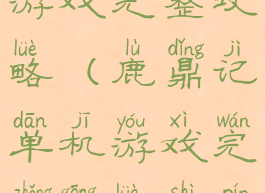 游戏完整攻
lüè lù dǐng jì
略（鹿鼎记
dān jī yóu xì wán
单机游戏完
zhěng gōng lüè shì pín